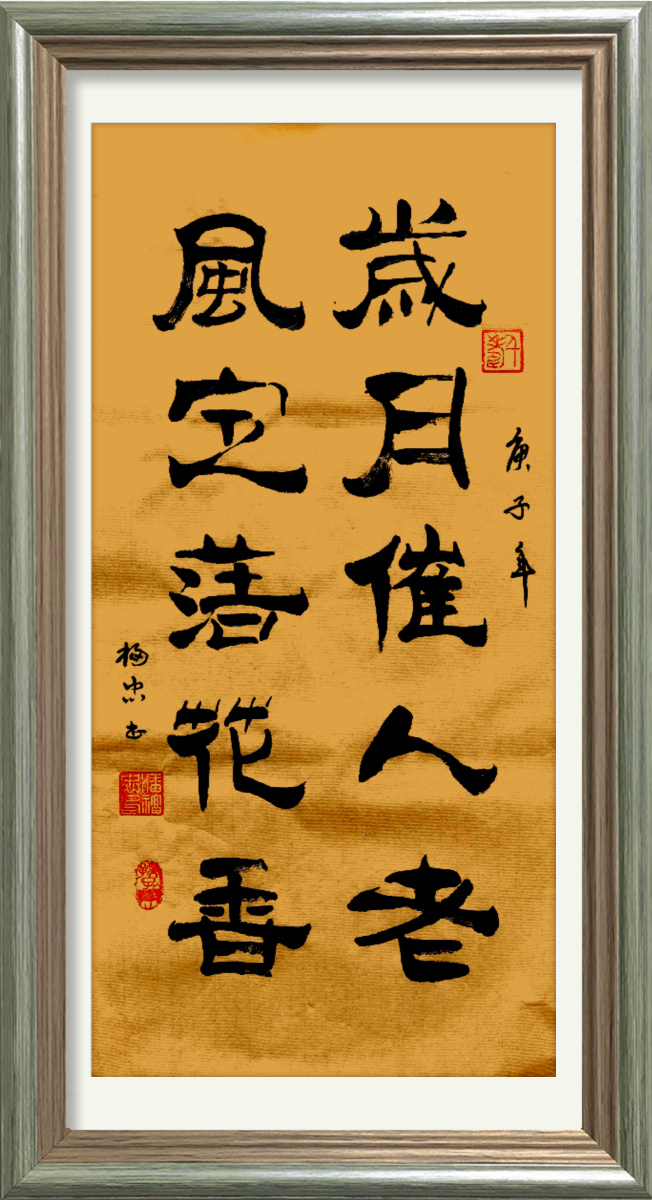 庚子年
歲月催人老
風定落花香
梅忠书